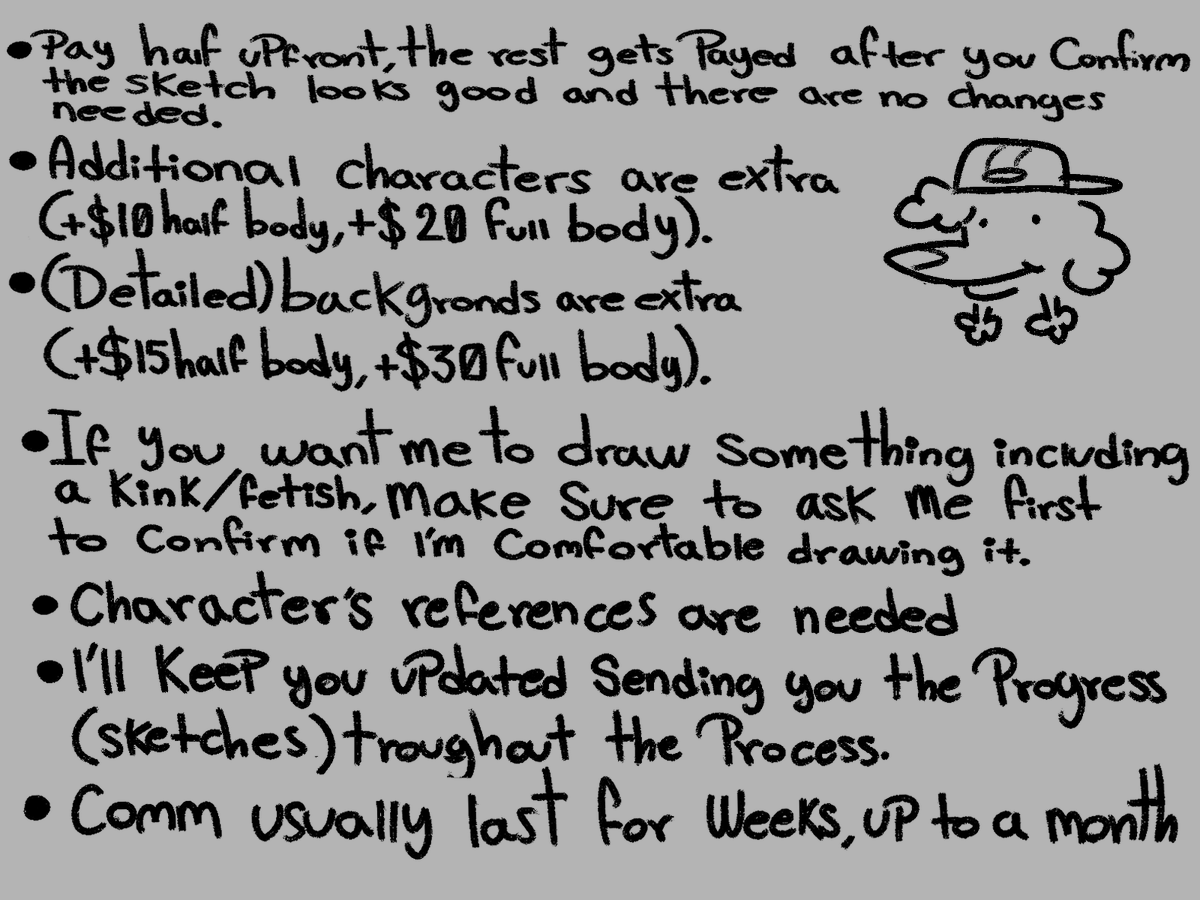 • Pay half upfront, the rest gets Payed after you Confirm
the sketch looks good and there are no changes
needed.
• Additional characters are extra
(+$10 half body, +$20 full body).
• (Detailed) backgronds are extra
(+$15 half body, +$30 full body).
• If you want me to draw something including
a kink/fetish, Make Sure to ask me first
to Confirm if I'm Comfortable drawing it.
• Character's references are needed
• I'll Keep you updated Sending you the Progress
(sketches) troughout the Process.
• Comm usually last for Weeks, up to a month